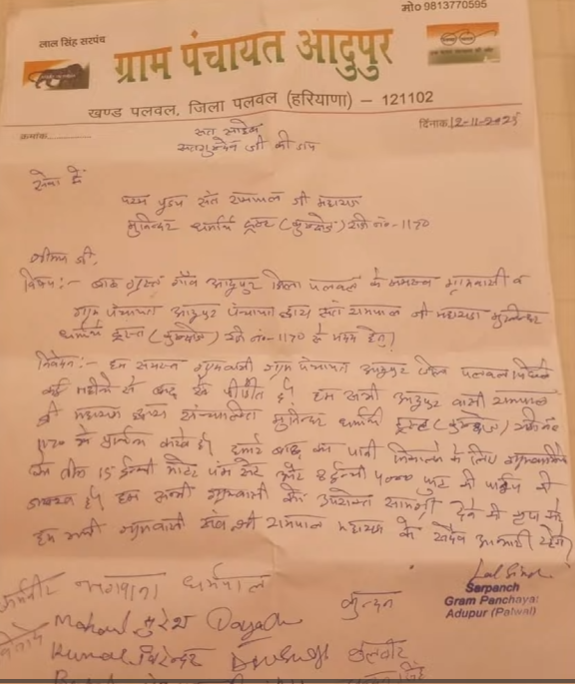 मो० 9813770595
लाल सिंह सरपंच
ग्राम पंचायत आदुपुर
खण्ड पलवल, जिला पलवल (हरियाणा) – 121102
क्रमांक
दिनांक 12-11-2025
सत साहेब
जी की दया
सेवा में
परम पूज्य संत रामपाल जी महाराज
मुनिन्दर धर्मार्थ ट्रस्ट (कुरुक्षेत्र) रजि नं०-1170
श्रीमान जी,
विषय:- बाढ़ ग्रस्त गाँव आदुपुर जिला पलवल के समस्त ग्रामवासी व
ग्राम पंचायत आदुपुर पंचायत द्वारा संत रामपाल जी महाराज मुनिन्दर
धर्मार्थ ट्रस्ट (कुरुक्षेत्र) रजि नं०-1170 से मदद हेतु।
निवेदन:- हम समस्त ग्रामवासी ग्राम पंचायत आदुपुर जिला पलवल पिछले
कई महीनों से बाढ़ से पीड़ित हैं। हम सभी आदुपुर वासी रामपाल
जी महाराज द्वारा संचालित मुनिन्दर धर्मार्थ ट्रस्ट (कुरुक्षेत्र) रजि नं०
1170 से प्रार्थना करते हैं। हमारे बाढ़ का पानी निकालने के लिए ग्रामवासियों
को तीन 15 मोटर पंप सेट और 8 इन्ची फुट की पाईप की
हम सभी ग्रामवासी को उपरोक्त सामग्री देने की कृपा करें
हम सभी ग्रामवासी संत श्री रामपाल महाराज के सदैव आभारी रहेंगे।
Lal Singh
Sarpanch
Gram Panchayat
Adupur (Palwal)
धर्मवीर धर्मपाल कुन्दन
सुरेश Dayach